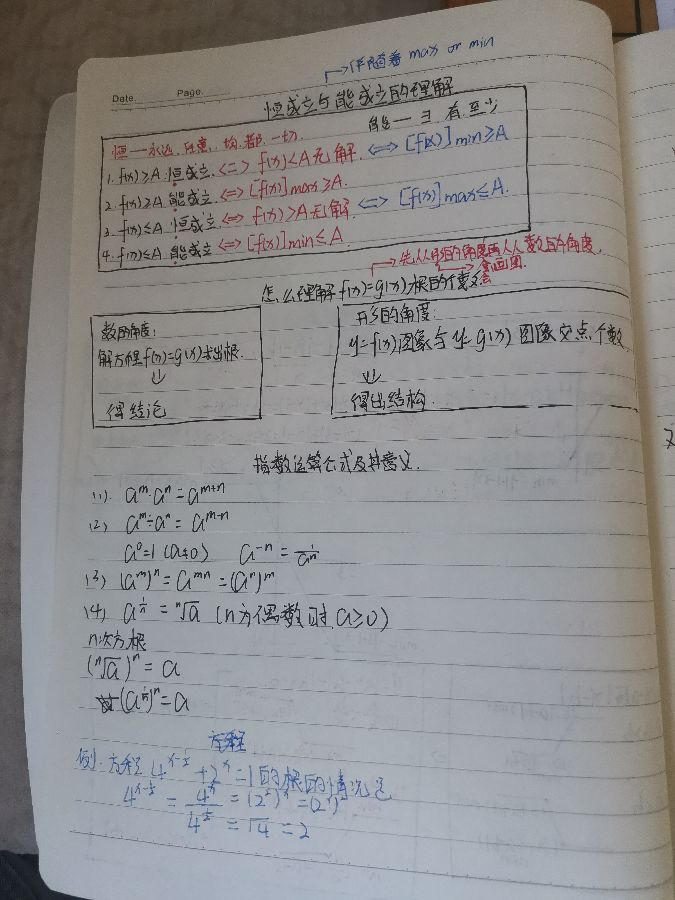 伴随着 max or min
Date. Page.
恒成立与能成立的理解
能—∃.有.至少
恒—永远.任意.均.都.一切.
1. f(x)≥A 恒成立 ⇔ f(x)<A无解 ⇔ [f(x)]min≥A
2. f(x)≥A 能成立 ⇔ [f(x)]max≥A.
3. f(x)≤A 恒成立 ⇔ f(x)>A无解 ⇔ [f(x)]max≤A.
4. f(x)≤A 能成立 ⇔ [f(x)]min≤A
先从形的角度再从数的角度.
会画图.
怎么理解f(x)=g(x)根的个数
数的角度:
解方程f(x)=g(x)求出根.
⇓
得结论
形的角度:
y=f(x)图象与y=g(x)图像交点个数
⇓
得出结构.
指数运算公式及其意义.
(1). aᵐ·aⁿ=aᵐ⁺ⁿ
(2) aᵐ÷aⁿ=aᵐ⁻ⁿ
a⁰=1 (a≠0) a⁻ⁿ=1/aⁿ
(3) (aᵐ)ⁿ=aᵐⁿ=(aⁿ)ᵐ
(4) a^(1/n)=ⁿ√a (n为偶数时a≥0)
n次方根
(ⁿ√a)ⁿ=a
(a^(1/n))ⁿ=a
方程
例.方程4^(x-½)+2ˣ=1的根的情况是
4^(x-½)=4ˣ/4^½=(2²)ˣ=(2ˣ)²
=√4=2